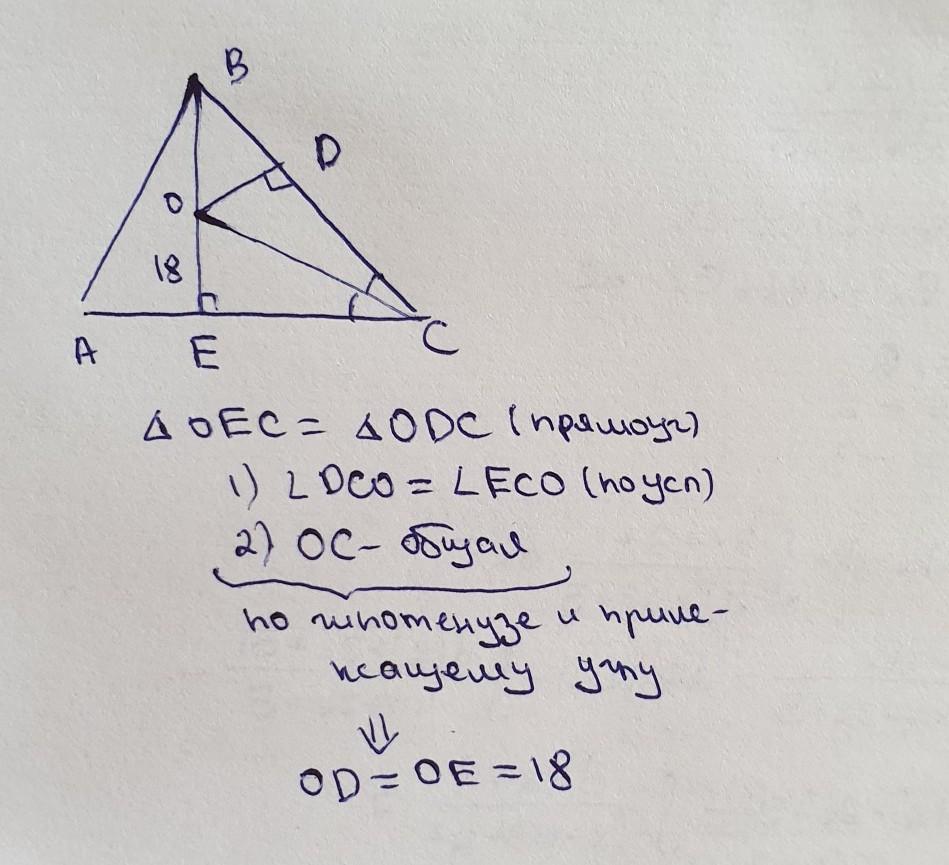 B
D
O
18
A E C
△OEC = △ODC (прямоуг)
1) ∠DCO = ∠ECO (по усл)
2) OC - общая
по гипотенузе и приле-
жащему углу
⇓
OD = OE = 18